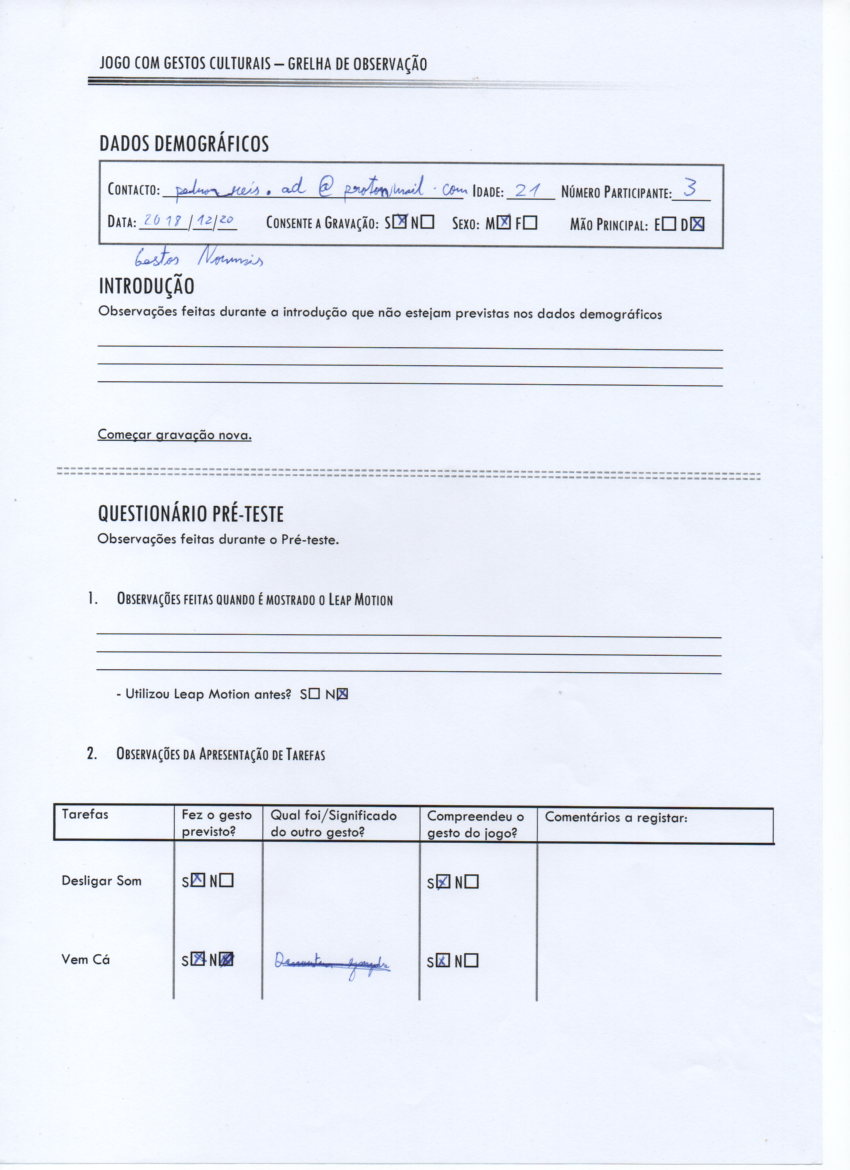 JOGO COM GESTOS CULTURAIS – GRELHA DE OBSERVAÇÃO
DADOS DEMOGRÁFICOS
CONTACTO: pedro.reis.ad@protonmail.com IDADE: 21 NÚMERO PARTICIPANTE: 3
DATA: 2018/12/20 CONSENTE A GRAVAÇÃO: S☒ N☐ SEXO: M☒ F☐ MÃO PRINCIPAL: E☐ D☒
Gestos Normais
INTRODUÇÃO
Observações feitas durante a introdução que não estejam previstas nos dados demográficos
Começar gravação nova.
QUESTIONÁRIO PRÉ-TESTE
Observações feitas durante o Pré-teste.
1. OBSERVAÇÕES FEITAS QUANDO É MOSTRADO O LEAP MOTION
- Utilizou Leap Motion antes? S☐ N☒
2. OBSERVAÇÕES DA APRESENTAÇÃO DE TAREFAS
Tarefas Fez o gesto previsto? Qual foi/Significado do outro gesto? Compreendeu o gesto do jogo? Comentários a registar:
Desligar Som S☒ N☐ S☒ N☐
Vem Cá S☒ N☒ S☒ N☐